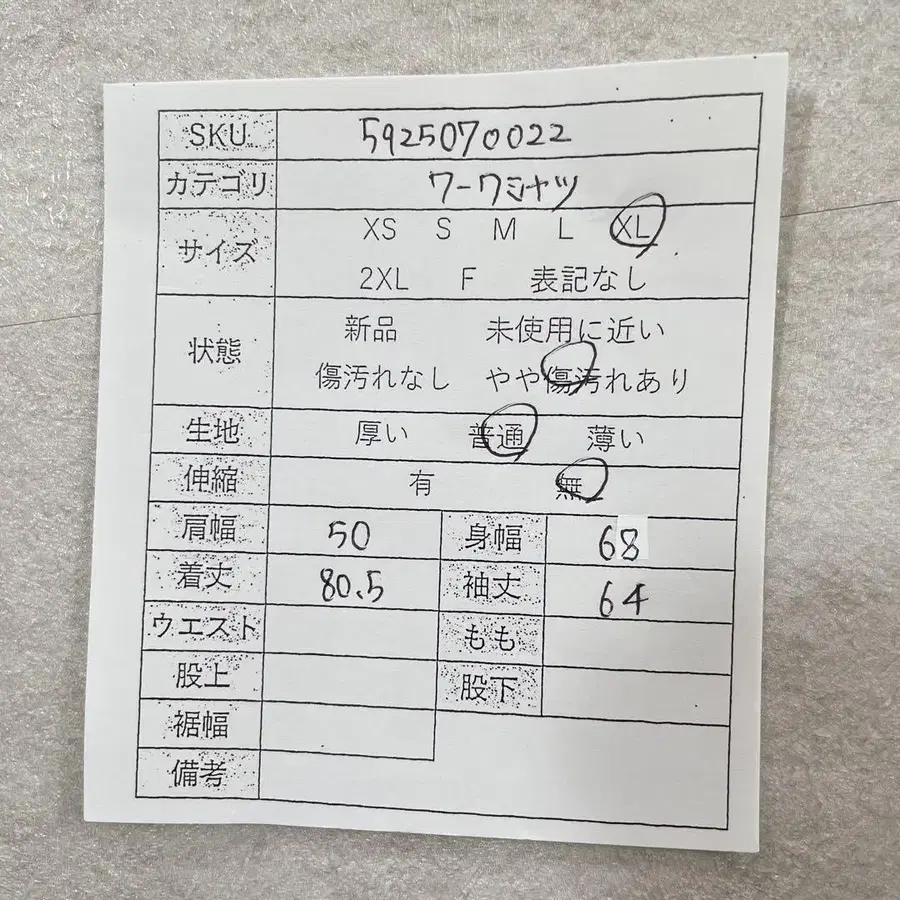 SKU 5925070022
カテゴリ ワークシャツ
サイズ XS S M L XL
2XL F 表記なし
状態 新品 未使用に近い
傷汚れなし やや傷汚れあり
生地 厚い 普通 薄い
伸縮 有 無
肩幅 50 身幅 68
着丈 80.5 袖丈 64
ウエスト もも
股上 股下
裾幅
備考